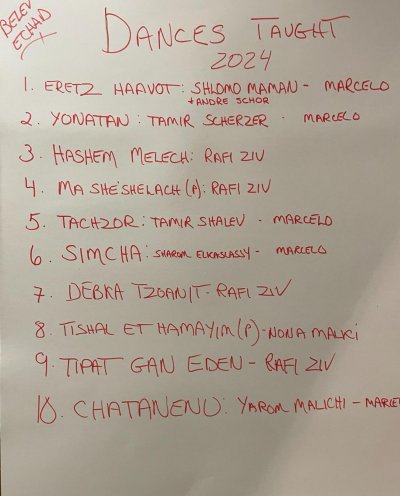 BELEV
ECHAD
DANCES TAUGHT
2024
1. ERETZ HAAVOT: SHLOMO MAMAN - MARCELO
+ANDRE SCHOR
2. YONATAN: TAMIR SCHERZER - MARCELO
3. HASHEM MELECH: RAFI ZIV
4. MA SHE'SHELACH (P): RAFI ZIV
5. TACHZOR: TAMIR SHALEV - MARCELO
6. SIMCHA: SHAROM ELKASLASSY - MARCELO
7. DEBKA TZOANIT - RAFI ZIV
8. TISHAL ET HAMAYIM (P) - NONA MALKI
9. TIPAT GAN EDEN - RAFI ZIV
10. CHATANENU: YAROM MALICHI - MARCE